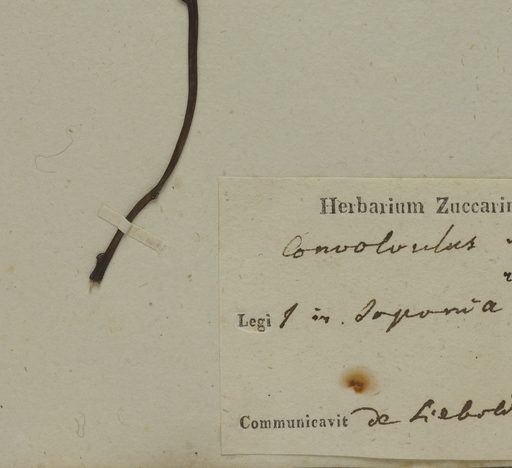 Herbarium Zuccarin
Convolvulus
Legi in. Japonia
Communicavit de Siebold